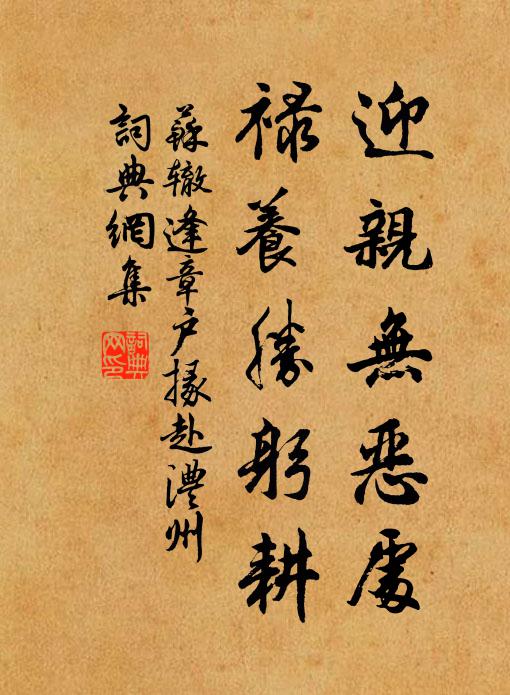 迎親無惡處
祿養勝躬耕
蘇轍逢章戶掾赴澧州
詞典網集
詞典网印